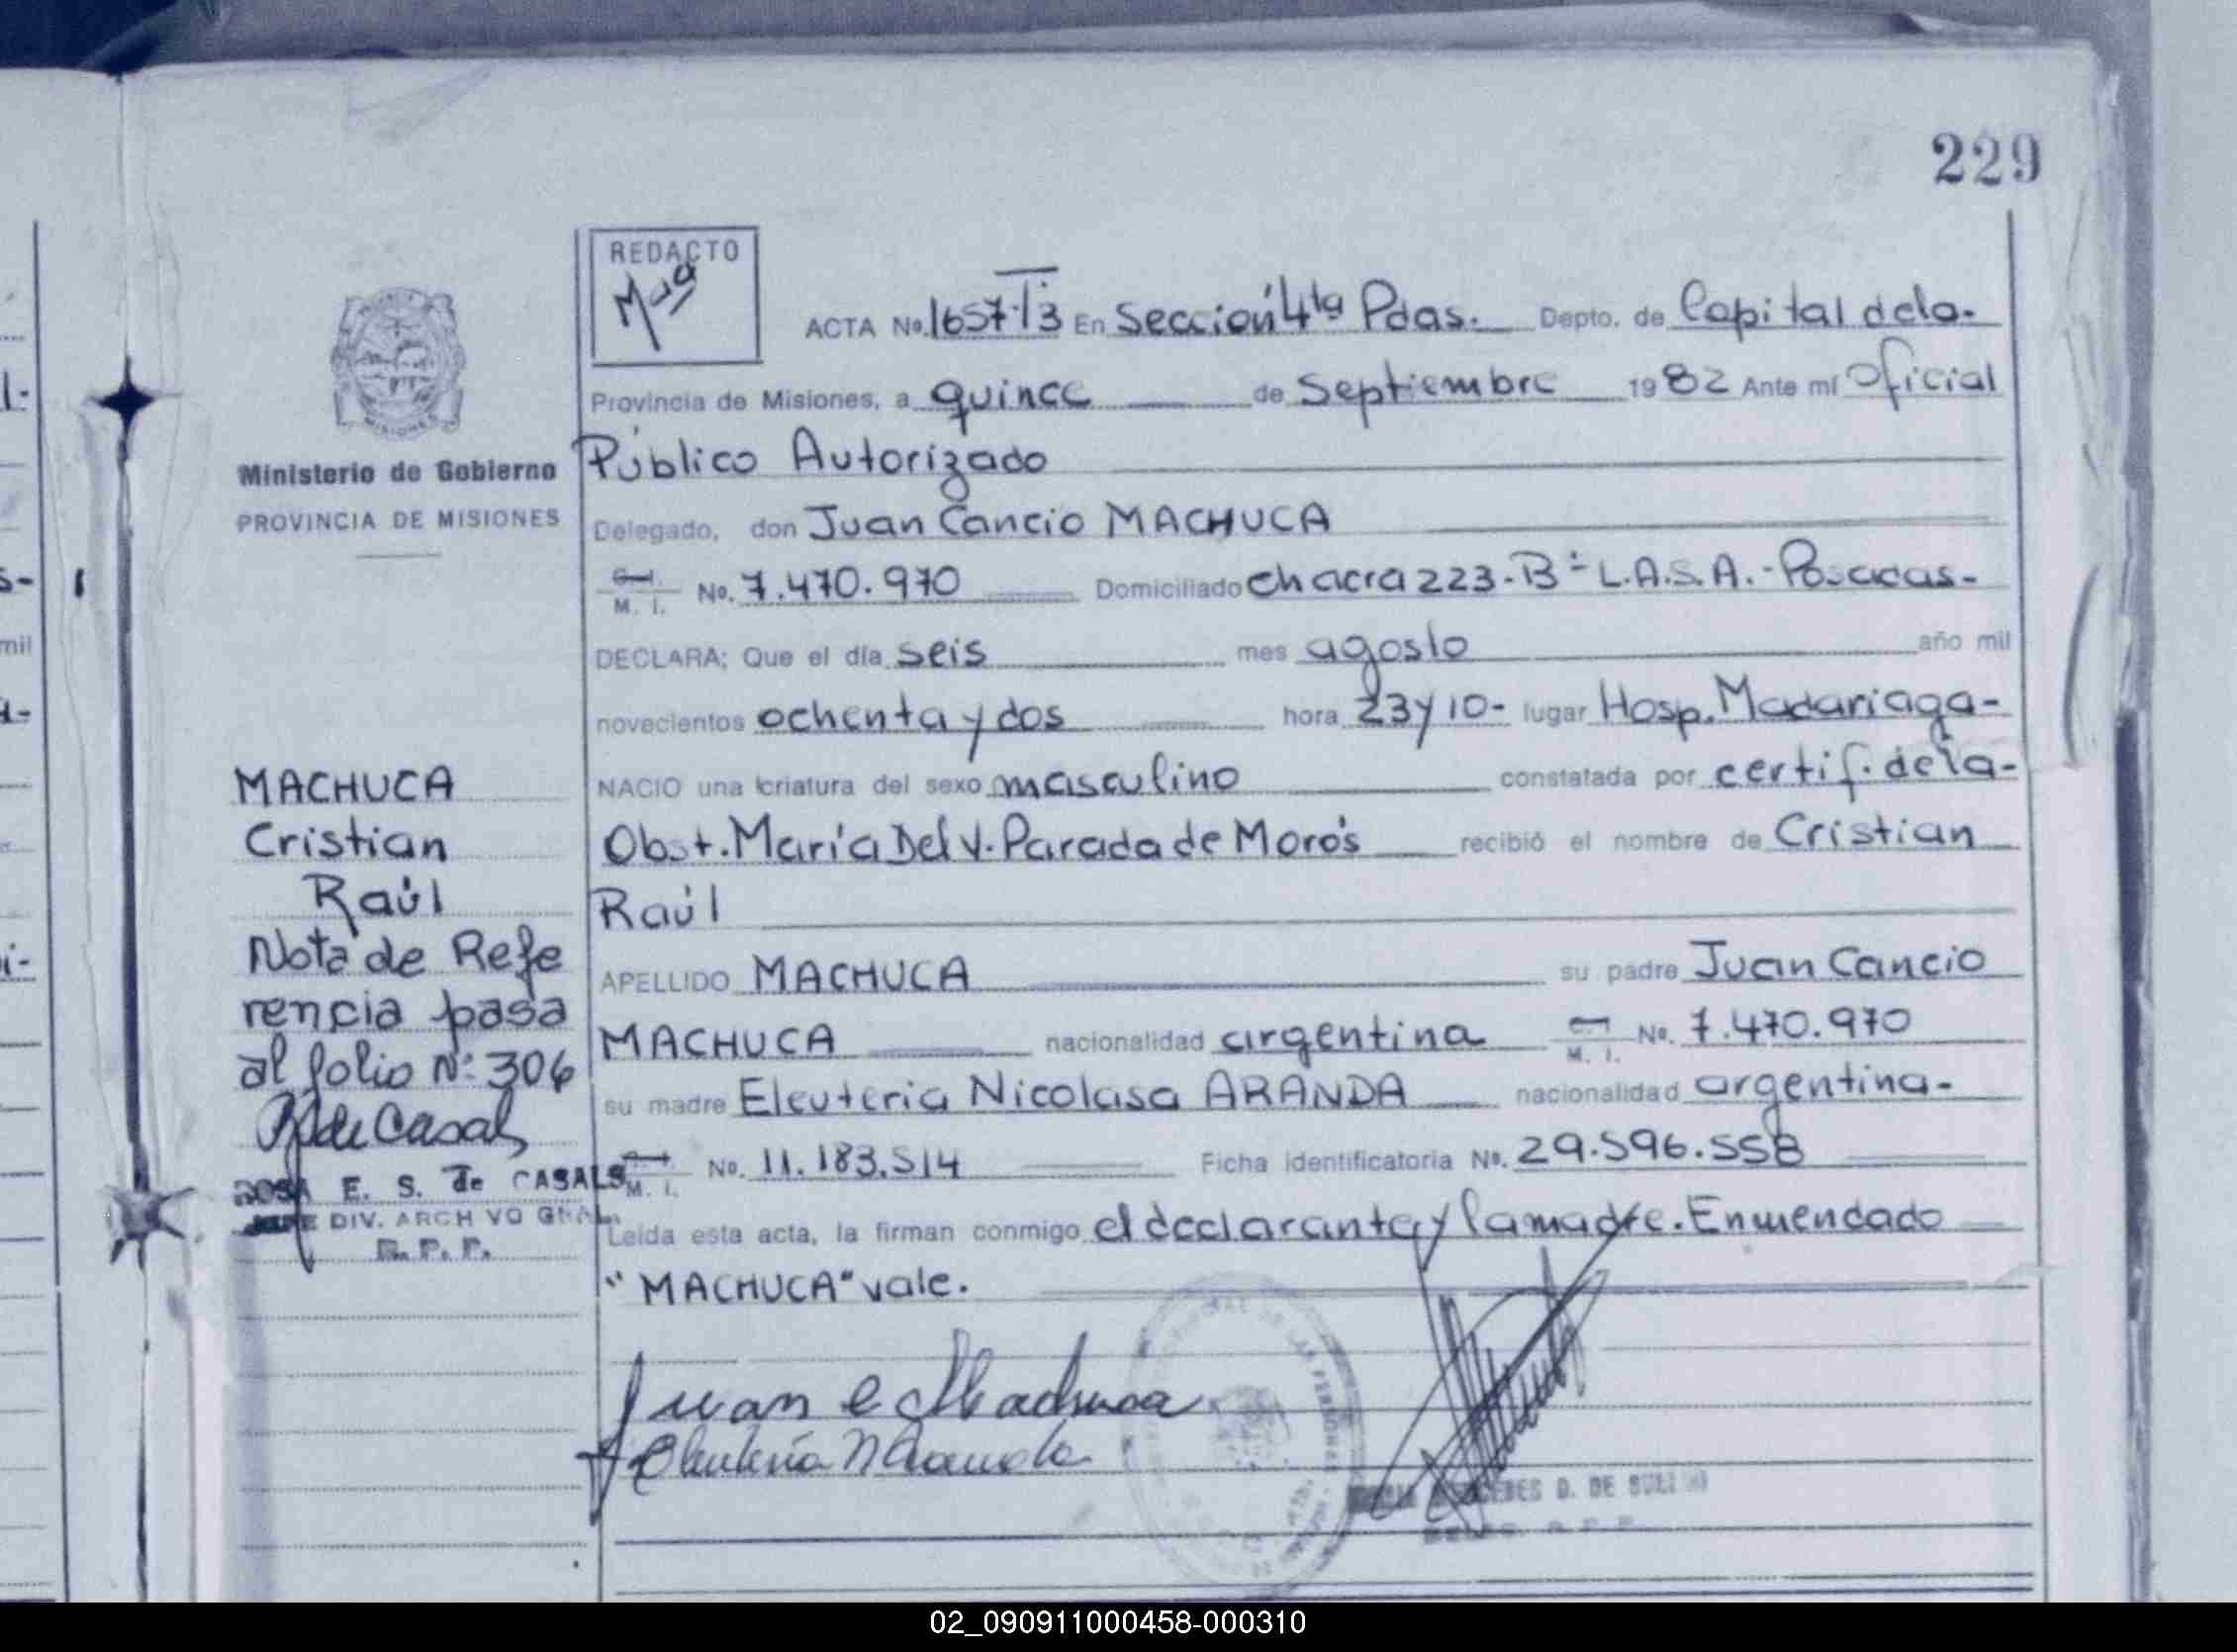 229
REDACTO
ACTA No. 1657-T3 En Sección 4ta Pdas. Depto. de Capital dela-
Provincia de Misiones, a quince de Septiembre 1982 Ante mí Oficial
Público Autorizado
Ministerio de Gobierno
PROVINCIA DE MISIONES
Delegado, don Juan Cancio MACHUCA
M. I. No. 7.470.970 Domiciliado Chacra 223-Bº L.A.S.A.-Posadas-
DECLARA; Que el día seis mes agosto año mil
novecientos ochenta y dos hora 23 y 10- lugar Hosp. Madariaga-
NACIO una criatura del sexo masculino constatada por certif. de la-
Obst. María Del V. Parada de Morós recibió el nombre de Cristian
Raúl
APELLIDO MACHUCA su padre Juan Cancio
MACHUCA nacionalidad argentina M. I. No. 7.470.970
su madre Eleuteria Nicolasa ARANDA nacionalidad argentina-
M. I. No. 11.183.514 Ficha identificatoria No. 29.596.558
Leída esta acta, la firman conmigo el declarante y la madre. Enmendado
"MACHUCA" vale.
MACHUCA
Cristian
Raúl
Nota de Refe
rencia pasa
al folio Nº 306
R de Casals
ROSA E. S. de CASALS
JEFE DIV. ARCHIVO GRAL.
R. P. P.
Juan C Machuca
Eleuteria N Aranda
D. DE
02_090911000458-000310